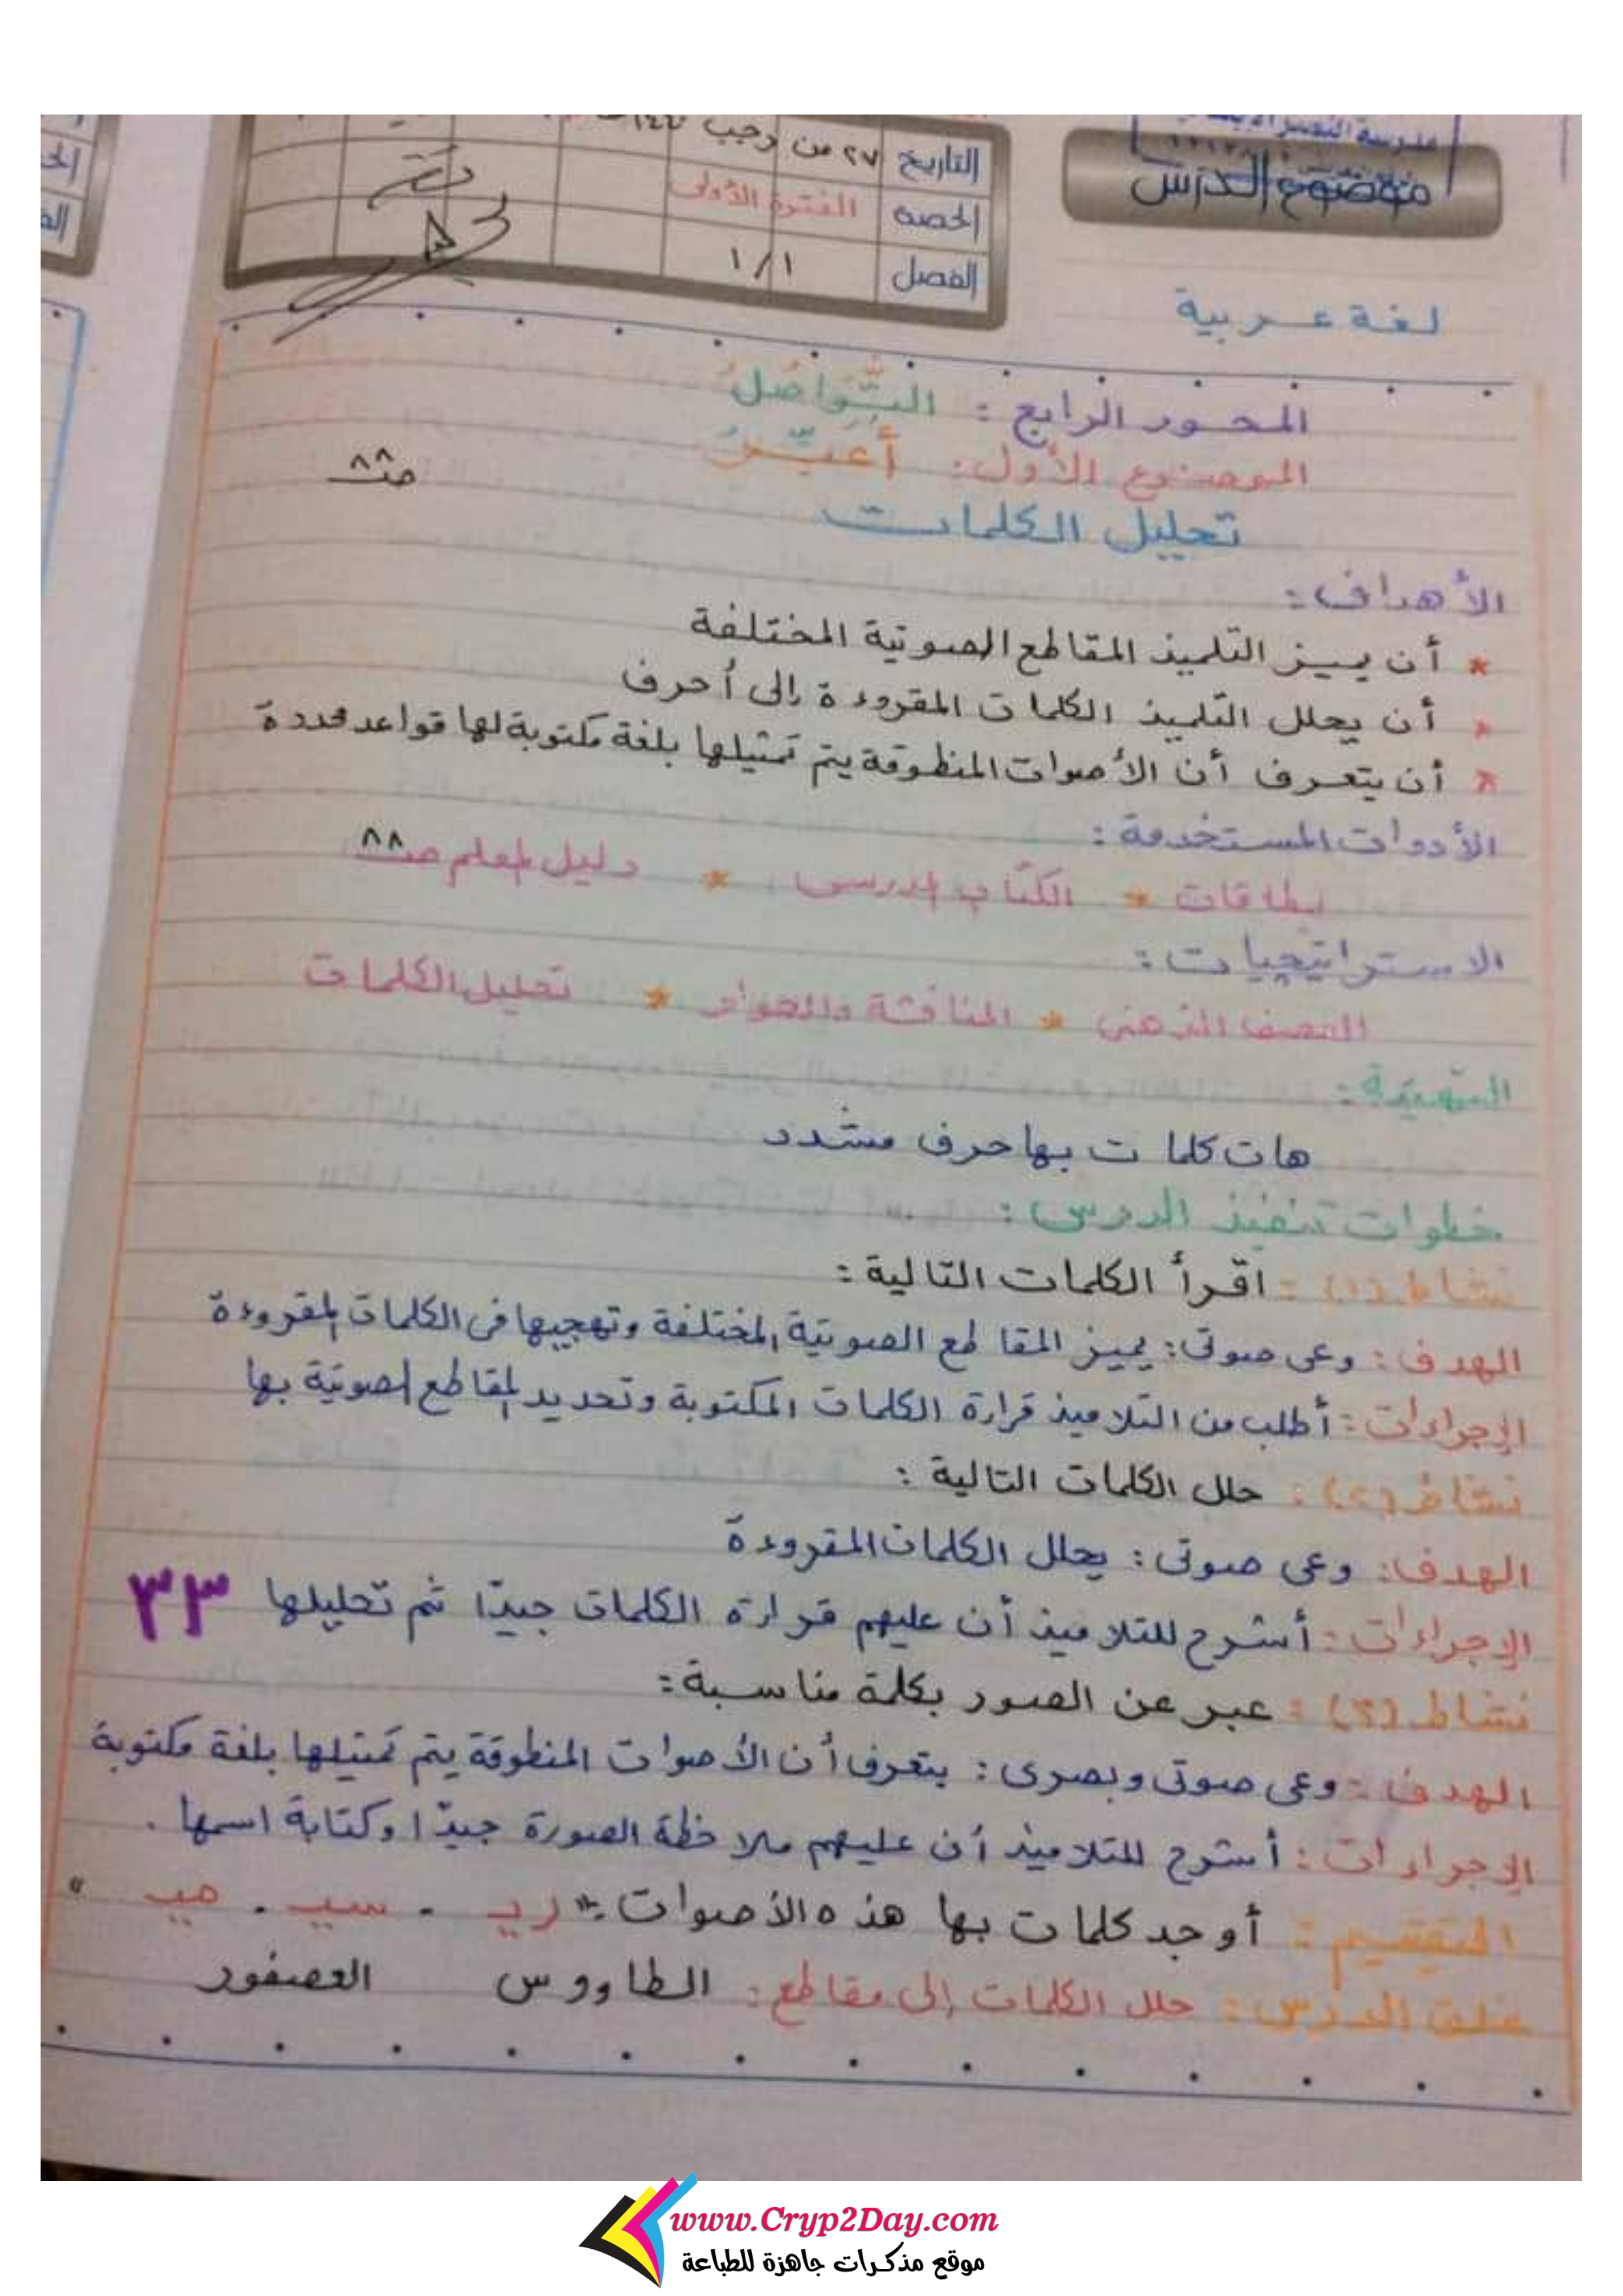 موضوع الدرس
التاريخ ٢٧ من رجب
الحصة الفترة الأولى
الفصل ١/١
لغة عربية
المحور الرابع : التَّوَاصُلُ
الموضوع الأول: أُعَبِّرُ صـ ٨٨
تحليل الكلمات
الأهداف :
* أن يميز التلميذ المقاطع الصوتية المختلفة
* أن يحلل التلميذ الكلمات المقروءة إلى أحرف
* أن يتعرف أن الأصوات المنطوقة يتم تمثيلها بلغة مكتوبة لها قواعد محددة
الأدوات المستخدمة :
بطاقات * الكتاب المدرسى * دليل المعلم صـ ٨٨
الاستراتيجيات :
العصف الذهنى * المناقشة والحوار * تحليل الكلمات
التهيئة :
هات كلمات بها حرف مشدد
خطوات تنفيذ الدرس :
نشاط (١) : اقرأ الكلمات التالية :
الهدف : وعى صوتى : يميز المقاطع الصوتية المختلفة وتهجيها فى الكلمات المقروءة
الإجراءات : أطلب من التلاميذ قراءة الكلمات المكتوبة وتحديد المقاطع الصوتية بها
نشاط (٢) : حلل الكلمات التالية :
الهدف : وعى صوتى : يحلل الكلمات المقروءة
الإجراءات : أشرح للتلاميذ أن عليهم قراءة الكلمات جيدًا ثم تحليلها ٣٣
نشاط (٣) : عبر عن الصور بكلمة مناسبة :
الهدف : وعى صوتى وبصرى : يتعرف أن الأصوات المنطوقة يتم تمثيلها بلغة مكتوبة
الإجراءات : أشرح للتلاميذ أن عليهم ملاحظة الصورة جيدًا وكتابة اسمها .
التقييم : أوجد كلمات بها هذه الأصوات : " ريـ . سيـ . صيـ "
غلق الدرس : حلل الكلمات إلى مقاطع : الطاووس العصفور
www.Cryp2Day.com
موقع مذكرات جاهزة للطباعة